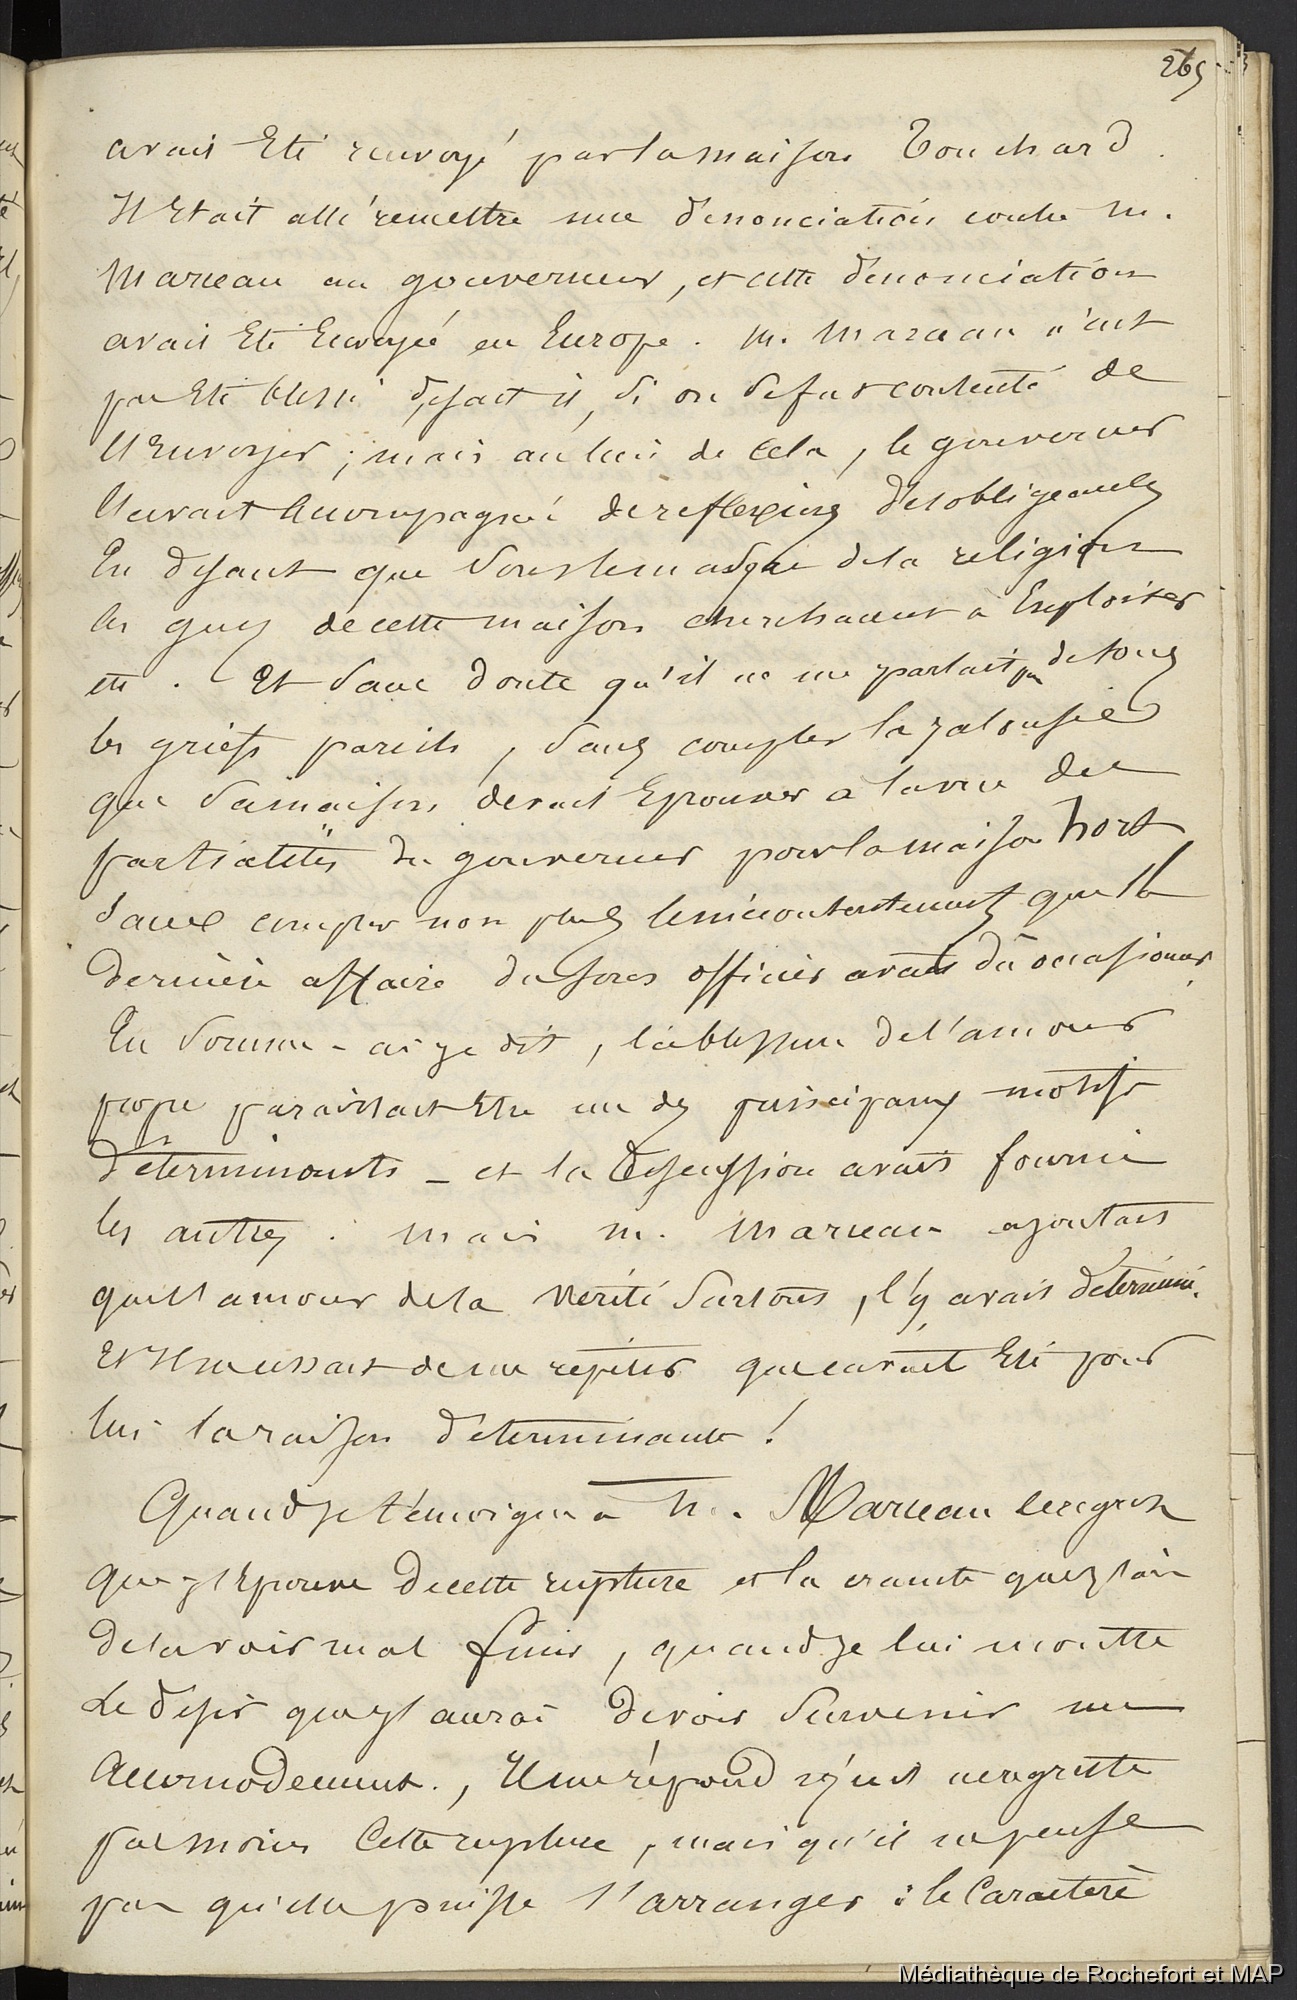 265
avait été renvoyé par la maison Bouchard.
Il était allé remettre une dénonciation contre M.
Marceau au gouverneur, et cette dénonciation
avait été Envoyée en Europe. M. Marceau n'eut
pas été blessé disait il, si on se fut contenté de
l'Envoyer ; mais au lieu de cela, le gouverneur
l'avait accompagné de reflexions désobligeantes
En disant que sous le masque de la religion
les gens de cette maison cherchaient à Exploiter
etc. Et sans doute qu'il ne me parlait pas de tous
les griefs pareils, sans compter la jalousie
que sa maison devait Eprouver à la vue des
partialités du gouverneur pour la maison Hort
sans compter non plus les mécontentements que la
dernière affaire de ses officiers avait dû occasionner.
En somme - ai-je dit, la blessure de l'amour
propre paraissait Etre un des principaux motifs
déterminants - et la discussion avait fourni
les autres. Mais M. Marceau ajoutait
que l'amour de la vérité surtout, l'y avait déterminé.
Et il ne cessait de me répéter que c'avait Eté pour
lui la raison déterminante !
Quand je témoigne à M. Marceau le regret
que j'Eprouve de cette rupture et la crainte que j'ai
de la voir mal finir, quand je lui montre
Le désir que j'aurai de voir survenir un
accomodement., Il me répond qu'il ne regrette
pas moins cette rupture, mais qu'il ne pense
pas qu'elle puisse s'arranger : le Caractère
Médiathèque de Rochefort et MAP